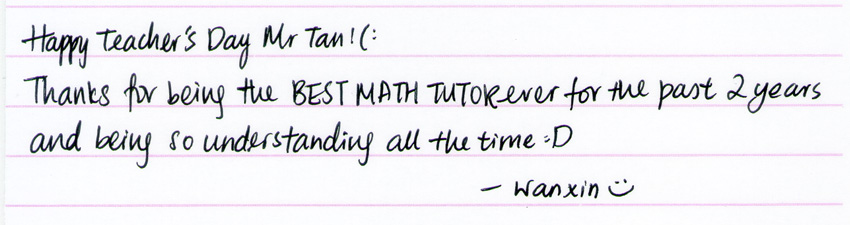 Happy Teacher's Day Mr Tan! (:
Thanks for being the BEST MATH TUTOR ever for the past 2 years
and being so understanding all the time :D
- Wanxin :)